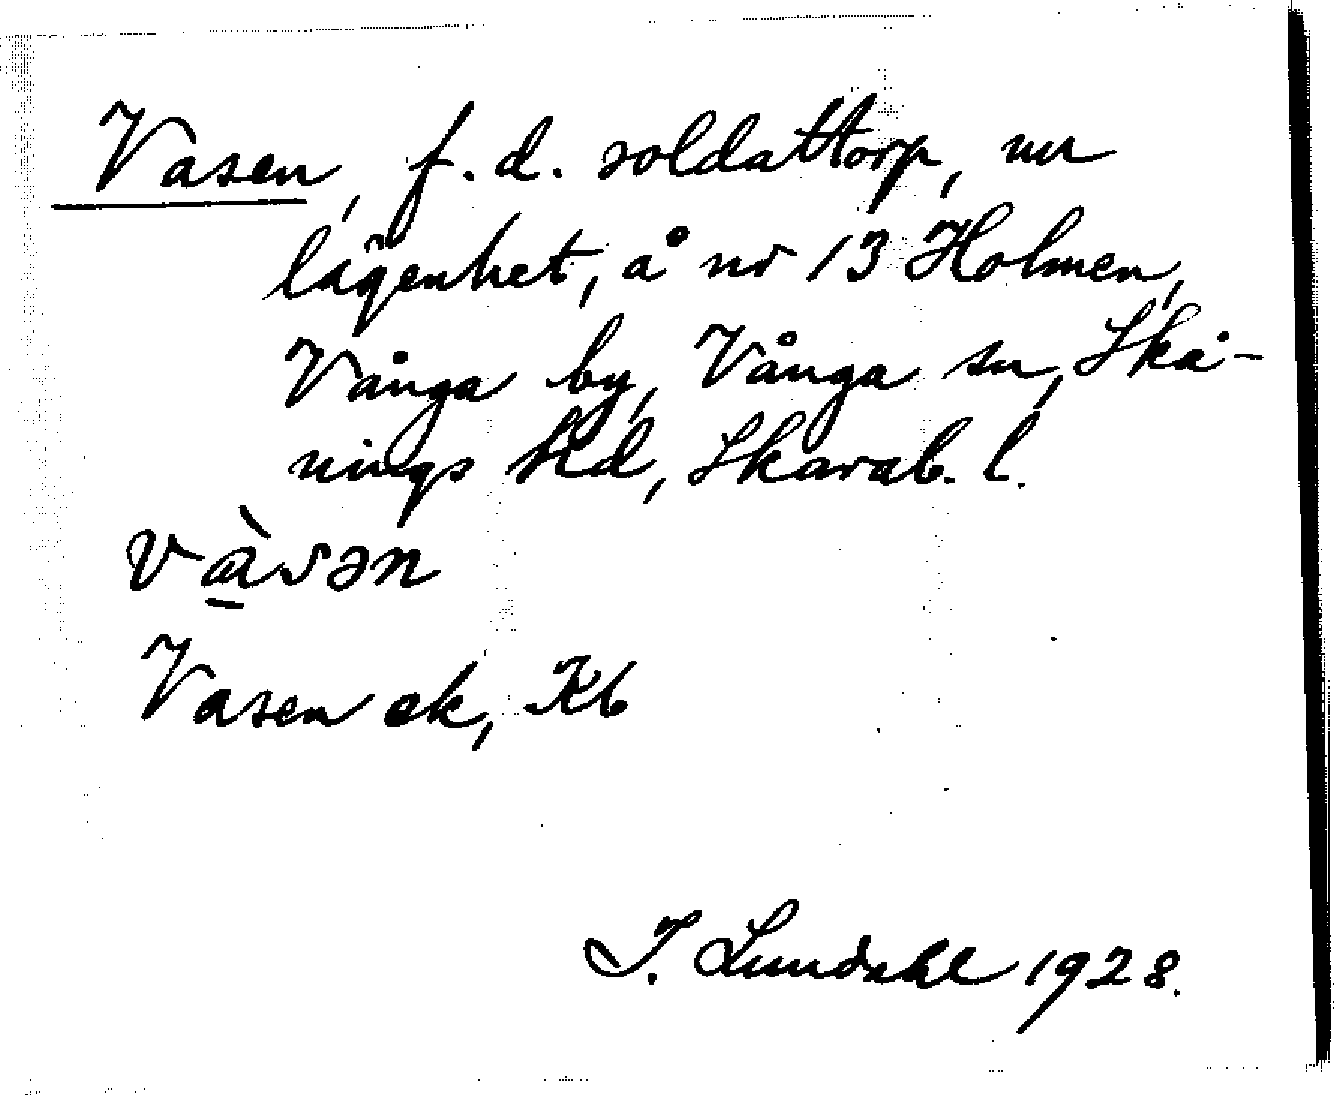 Vasen, f.d. soldattorp, nu
lägenhet, å nr 13 Holmen,
Vånga by, Vånga sn, Skå-
nings hd, Skarab. l.
và̱sən
Vasen ek, Kb
I. Lundahl 1928.